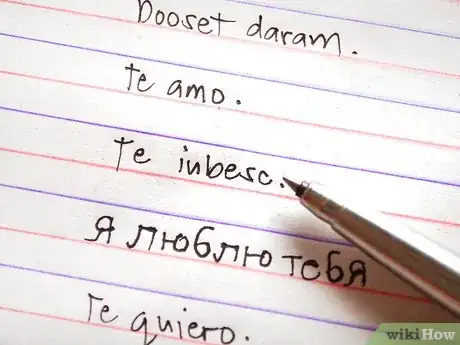 Dooset daram.
Te amo.
Te inbesc.
Я люблю тебя
Te quiero.
wikiHow